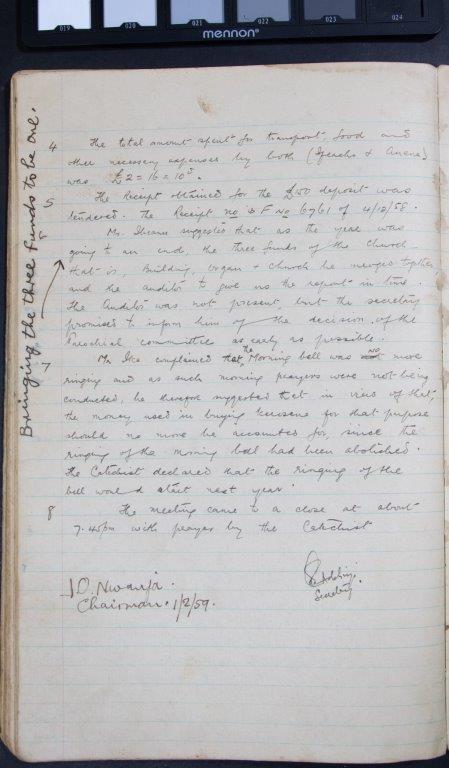 019 020 021 022 023 024
mennon
Bringing the three funds to be one.
4 The total amount spent for transport, food and
other necessary expenses by both (Ifeacho & Anene)
was £2 = 16 = 10d.
5 The Receipt obtained for the £100 deposit was
tendered. The Receipt no is F No 6761 of 4/12/58.
6 Mr. suggested that as the year was
going to an end, the three funds of the Church
that is, Building, Organ & Church be merged together,
and the auditor to give us the report in time.
The Auditor was not present, but the secretary
promised to inform him of the decision of the
Parochial committee as early as possible.
7 Mr. Ike complained that the Morning bell was no more
ringing and as such morning prayers were not being
conducted, he therefore suggested that in view of that
the money used in buying kerosene for that purpose
should no more be accounted for, since the
ringing of the morning bell had been abolished.
The Catechist declared that the ringing of the
bell would start next year.
8 The meeting came to a close at about
7.45pm with prayer by the Catechist
J.O. Nwanja.
Chairman. 1/2/59.
Secretary